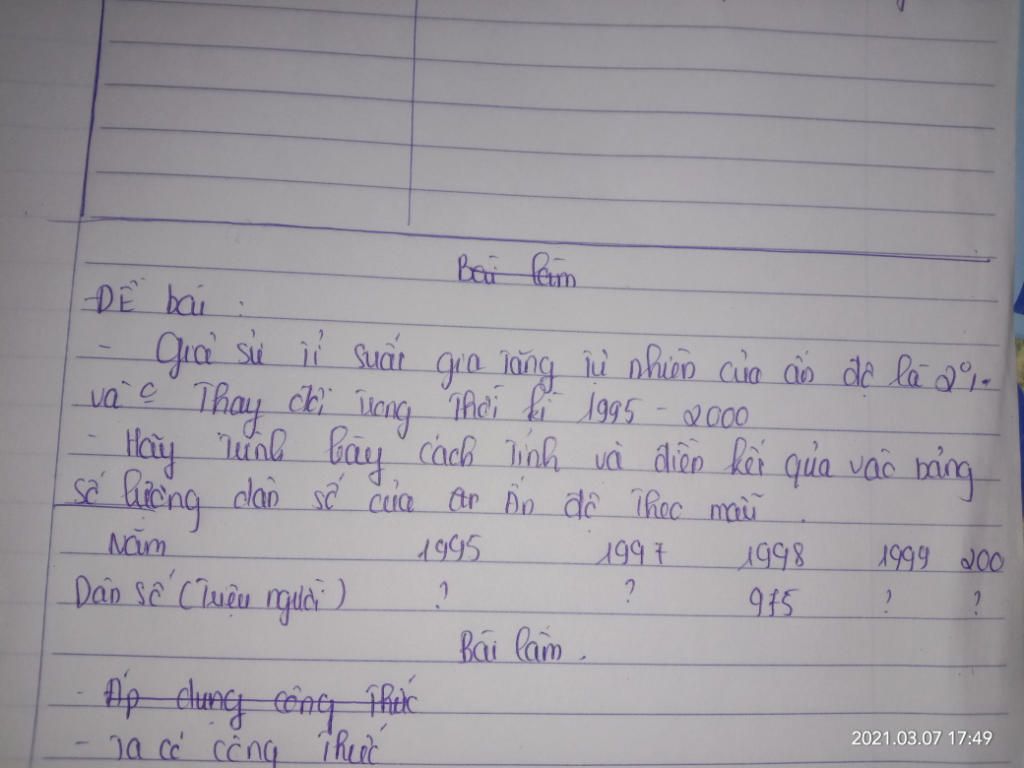 Bài làm
ĐỀ bài :
- Giả sử tỉ suất gia tăng tự nhiên của ấn độ là 2%
và c thay đổi trong thời kì 1995 - 2000
- Hãy trình bày cách tính và điền kết qủa vào bảng
số lượng dân số của Ấn độ theo mẫu .
Năm 1995 1997 1998 1999 200
Dân số (triệu người) ? ? 975 ? ?
Bài làm .
- Áp dụng công thức
- Ta có công thức
2021.03.07 17:49